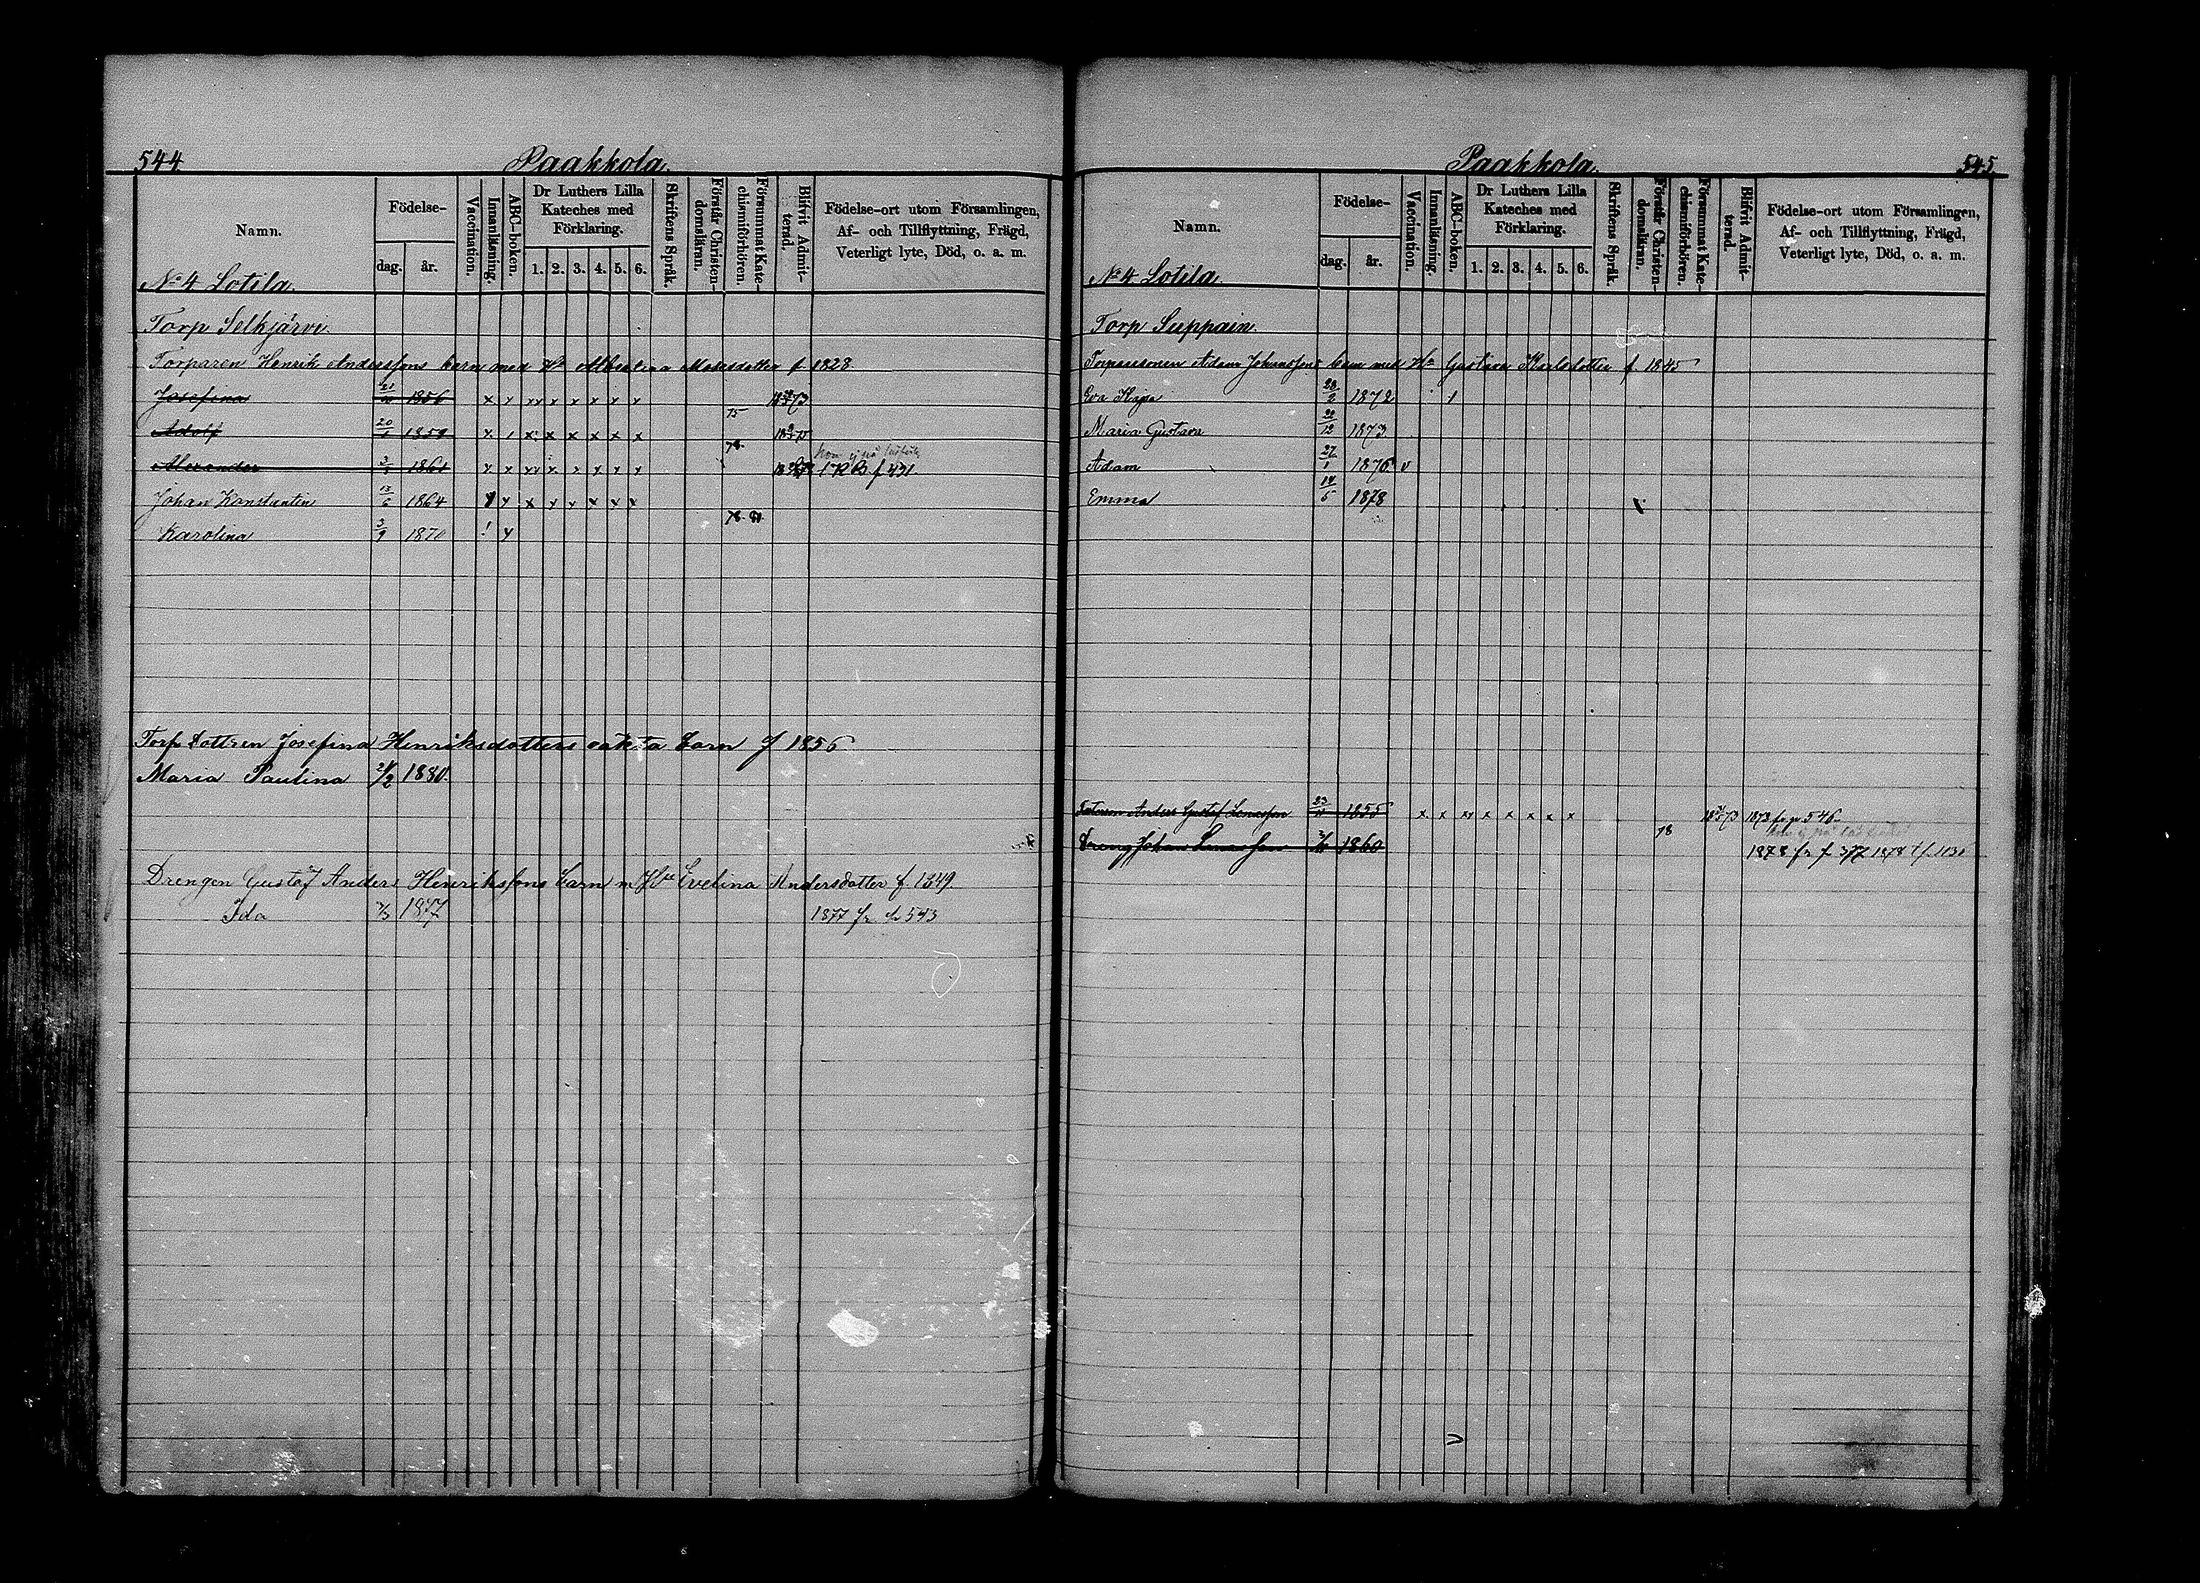 544. Paakkola.
Namn. Födelse- dag. år. Vaccination. Innanläsning. ABC-boken. Dr Luthers Lilla Kateches med Förklaring. 1. 2. 3. 4. 5. 6. Skriftens Språk. Förstår Christendomsläran. Försummat Katechismiförhören. Blifvit Admitterad. Födelse-ort utom Församlingen, Af- och Tillflyttning, Frägd, Veterligt lyte, Död, o. a. m.
No 4 Lotila.
Torp Selkjärvi.
Torparen Henrik Anderssons barn med Hu Albertina Mosesdotter f 1828
Josefina 1856 x x x x x x x
75
Adolf 20 1858 x x x x x x x
78
Alexander 3 1861 x x x x x x x f 431
Johan Konstantin 13/6 1864 x x x x x x x
78
Karolina 3/9 1870
Torp dottren Josefina Henriksdotters oäkta barn f 1856
Maria Paulina 1880.
Drengen Gustaf Anders Henrikssons barn m Hu Evelina Andersdotter f. 1849.
Ida 1877 1877 fr p 543
Paakkola. 545.
Namn. Födelse- dag. år. Vaccination. Innanläsning. ABC-boken. Dr Luthers Lilla Kateches med Förklaring. 1. 2. 3. 4. 5. 6. Skriftens Språk. Förstår Christendomsläran. Försummat Katechismiförhören. Blifvit Admitterad. Födelse-ort utom Församlingen, Af- och Tillflyttning, Frägd, Veterligt lyte, Död, o. a. m.
No 4 Lotila.
Torp Suppain.
Adam Johanssons barn med Hu Gustava Karlsdotter f. 1845
Eva 28/2 1872
Maria Gustava 1873
Adam 27/1 1876 v
Emma 14/5 1878
Anders Gustaf 23 1855 x x x x x x x x 1873 fr p 546
78
Dreng Johan 1860 1878 fr f 377 1878 t f. 1130